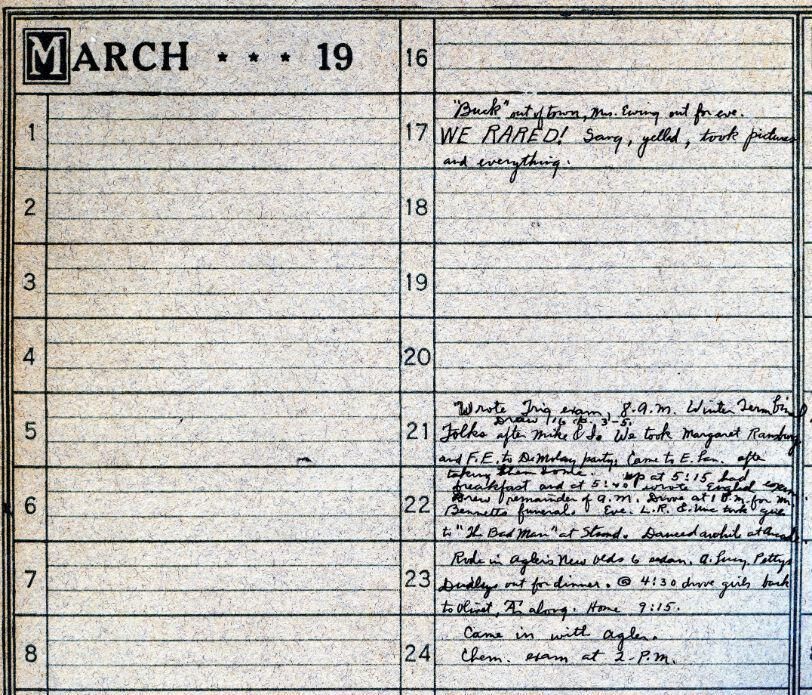 MARCH * * * 19
1
2
3
4
5
6
7
8
16
17
"Buck" out of town, Mrs. Ewing out for eve.
WE RARED! Sang, yelled, took pictures
and everything.
18
19
20
21
Wrote Trig exam, 8 A.M. Winter Term
Draw 3-5.
Folks after Mike & I. We took Margaret
and F.E. to DeMolay party. Came to E. Lan. after
taking them home.
22
up at 5:15, had
breakfast and at 5:40 wrote English exam
Drew remainder of A.M. Drove at 1 P.M. for Mr.
Bennetts funeral. Eve. L.R. & took girls
to "The Bad Man" at Strand. Danced awhile at
23
Rode in Agler's New Olds 6 sedan. A. Lucy, Pettys
Dudleys out for dinner. @ 4:30 drove girls back
to Olivet, "A" along. Home 9:15.
24
Came in with Agler.
Chem. exam at 2 P.M.